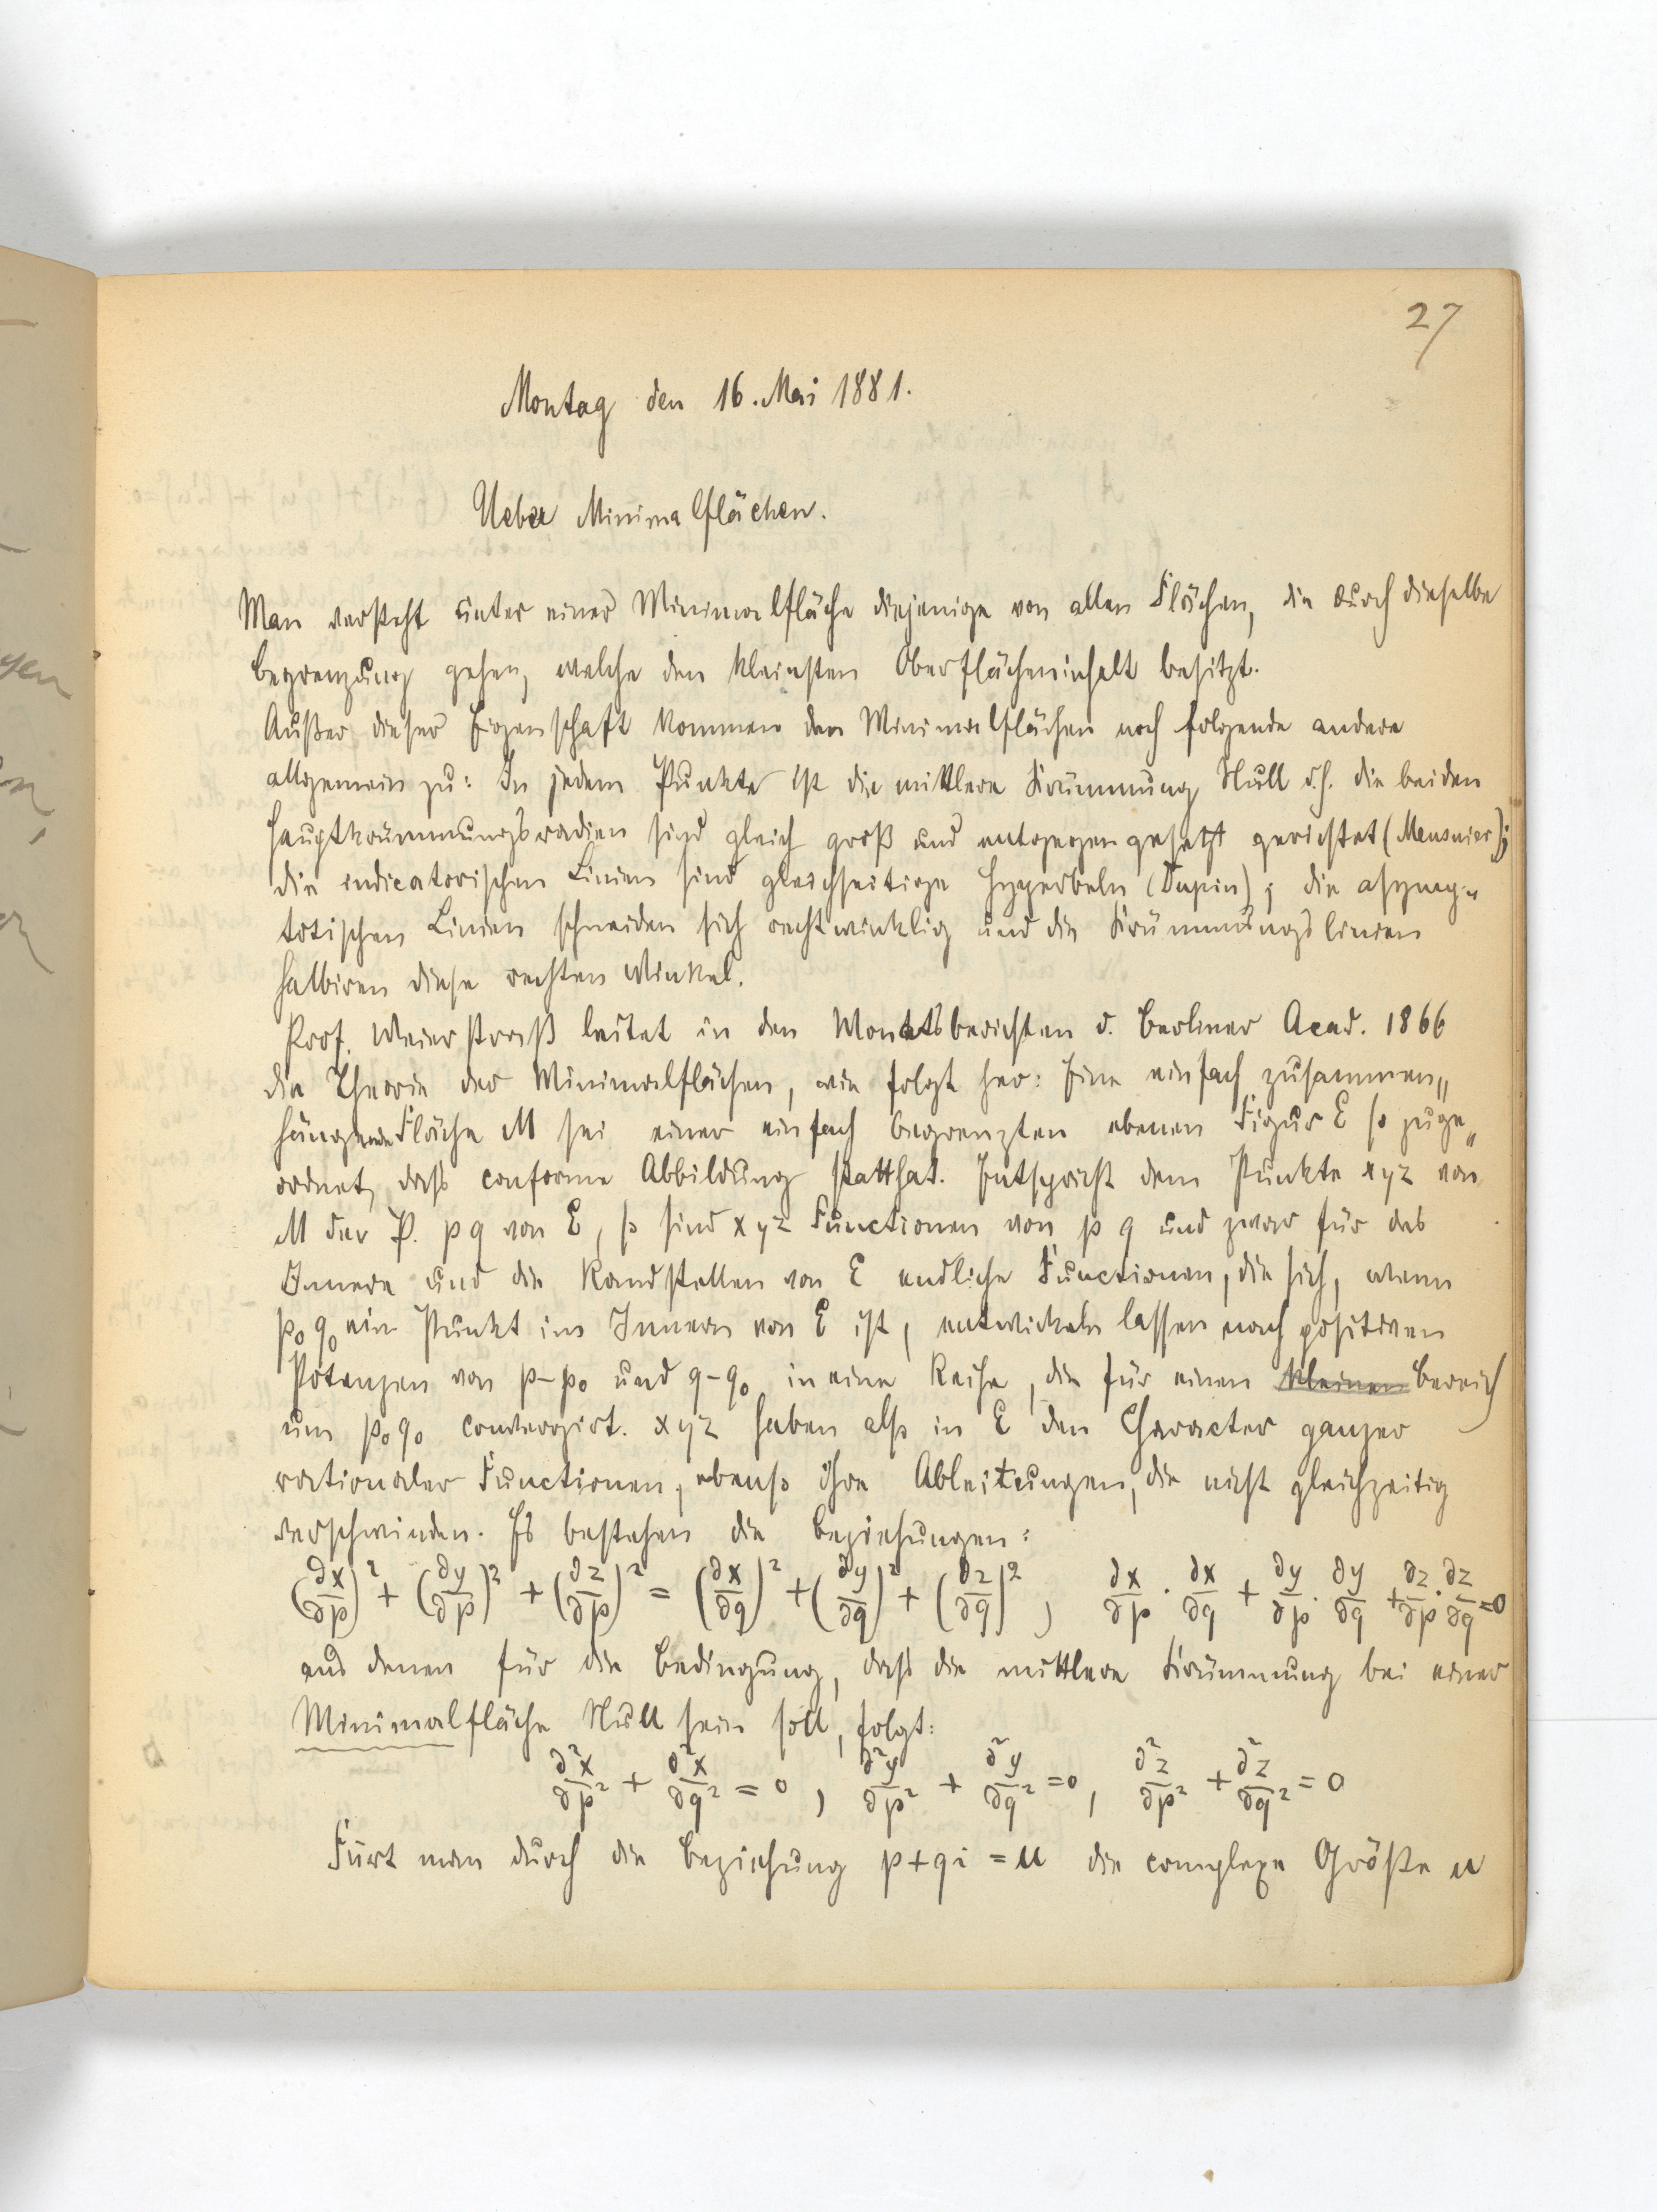 27
Montag den 16. Mai 1881.
Ueber Minimalflächen.
Man versteht unter einer Minimalfläche diejenige von allen Flächen, die durch dieselbe
Begrenzung gehen, welche den kleinsten Oberflächeninhalt besitzt.
Außer dieser Eigenschaft kommen den Minimalflächen noch folgende andere
allgemein zu: In jedem Punkte ist die mittlere Krümmung Null d.h. die beiden
Hauptkrümmungsradien sind gleich groß und entgegengesetzt gerichtet (Meusnier);
die indicatorischen Linien sind gleichseitige Hyperbeln (Dupin); die asymp-
totischen Linien schneiden sich rechtwinklig und die Krümmungslinien
halbiren diese rechten Winkel.
Prof. Weierstraß leitet in den Monatsberichten d. Berliner Acad. 1866
die Theorie der Minimalflächen, wie folgt her: Eine einfach zusammen„
hängende Fläche M sei einer einfach begrenzten ebenen Figur E so zuge„
ordnet, daß conforme Abbildung statthat. Entspricht dem Punkte xyz von
M der P. pq von E, so sind xyz Functionen von p q und zwar für das
Innere und die Randstellen von E endliche Functionen, die sich, wenn
p₀q₀ ein Punkt im Innern von E ist, entwickeln lassen nach positiven
Potenzen von p-p₀ und q-q₀ in eine Reihe, die für einen kleinen Bereich
um p₀q₀ convergirt. xyz haben also in E den Character ganzer
rationaler Functionen, ebenso ihre Ableitungen, die nicht gleichzeitig
verschwinden. Es bestehen die Beziehungen:
(∂x/∂p)² + (∂y/∂p)² + (∂z/∂p)² = (∂x/∂q)² + (∂y/∂q)² + (∂z/∂q)², ∂x/∂p · ∂x/∂q + ∂y/∂p · ∂y/∂q + ∂z/∂p · ∂z/∂q = 0
aus denen für die Bedingung, daß die mittlere Krümmung bei einer
Minimalfläche Null sein soll, folgt:
∂²x/∂p² + ∂²x/∂q² = 0, ∂²y/∂p² + ∂²y/∂q² = 0, ∂²z/∂p² + ∂²z/∂q² = 0
Fürt man durch die Beziehung p+qi = u die complexe Größe u